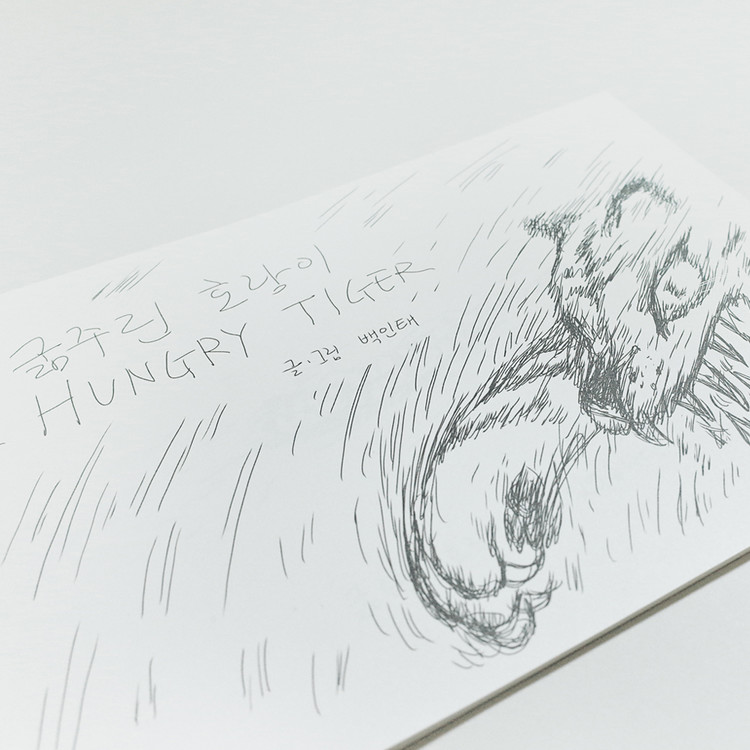 굶주린 호랑이
HUNGRY TIGER
글·그림 백인태